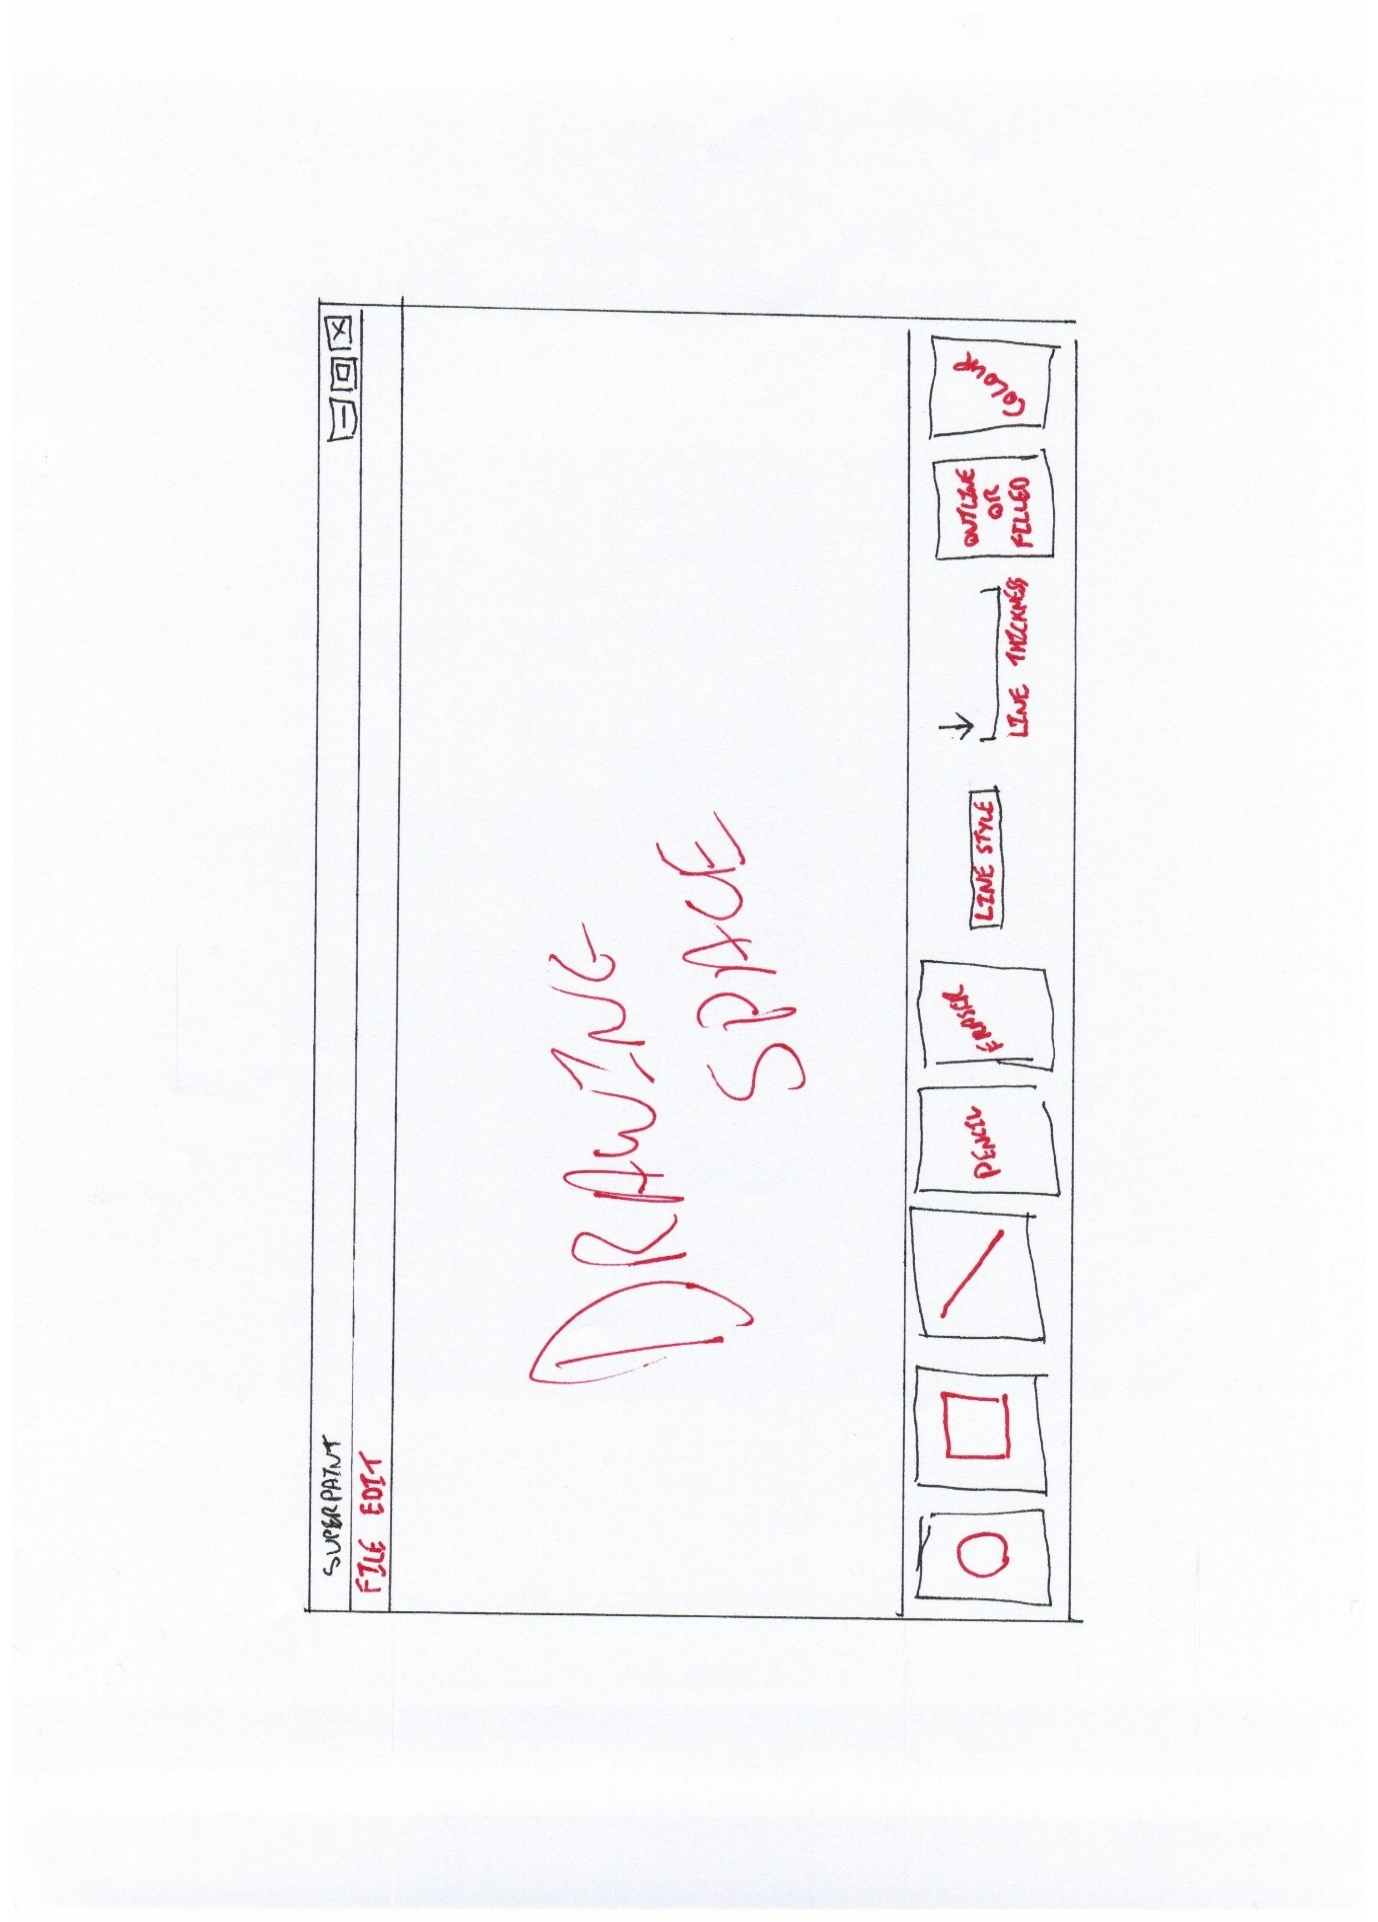 SUPERPAINT
FILE EDIT
DRAWING
SPACE
PENCIL
ERASER
LINE STYLE
LINE THICKNESS
OUTLINE
OR
FILLED
COLOUR